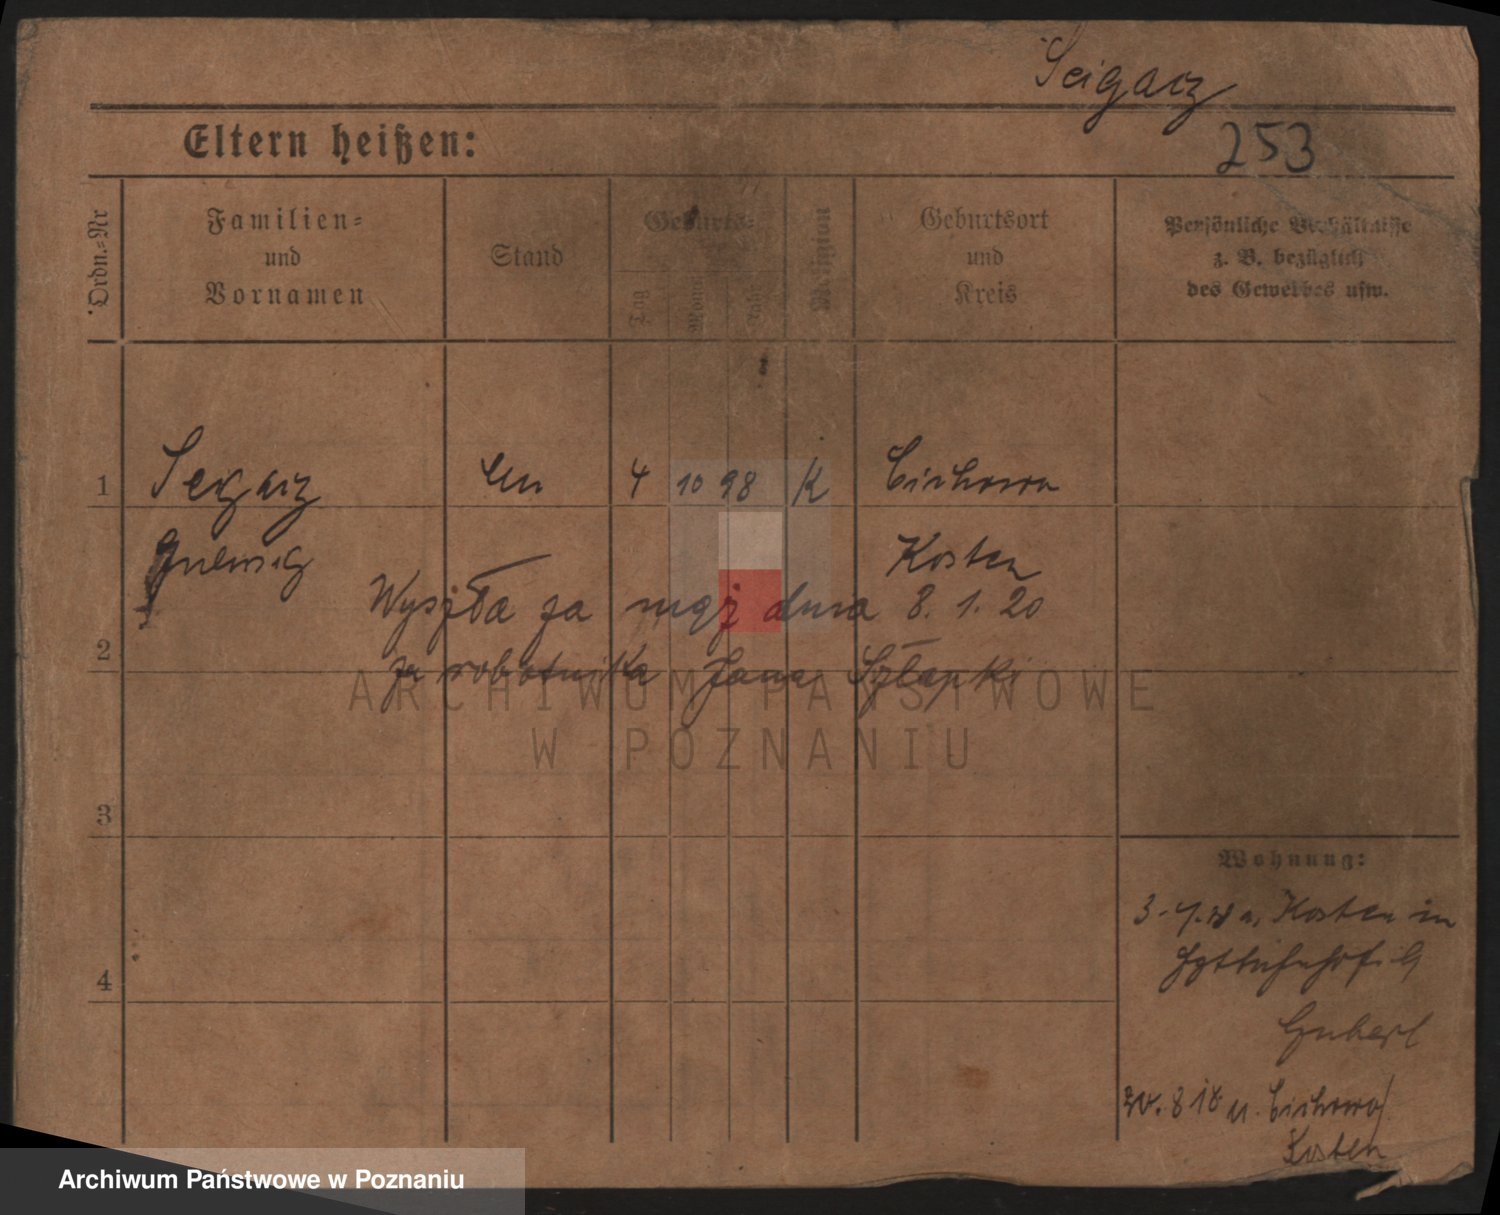 Seigarz
253
Eltern heißen:
Ordn.=Nr
Familien=
und
Vornamen
Stand
Geburts=
Tag
Monat
Jahr
Religion
Geburtsort
und
Kreis
Persönliche Verhältnisse
z. B. bezüglich
des Gewerbes usw.
1
4 10 98 K Cichowo
Kosten
Wyszła za mąż dnia 8. 1. 20
za robotnika Jana Szłapki
2
3
4
ARCHIWUM PAŃSTWOWE
W POZNANIU
Wohnung:
Kosten in
Cichowo
Kosten
Archiwum Państwowe w Poznaniu